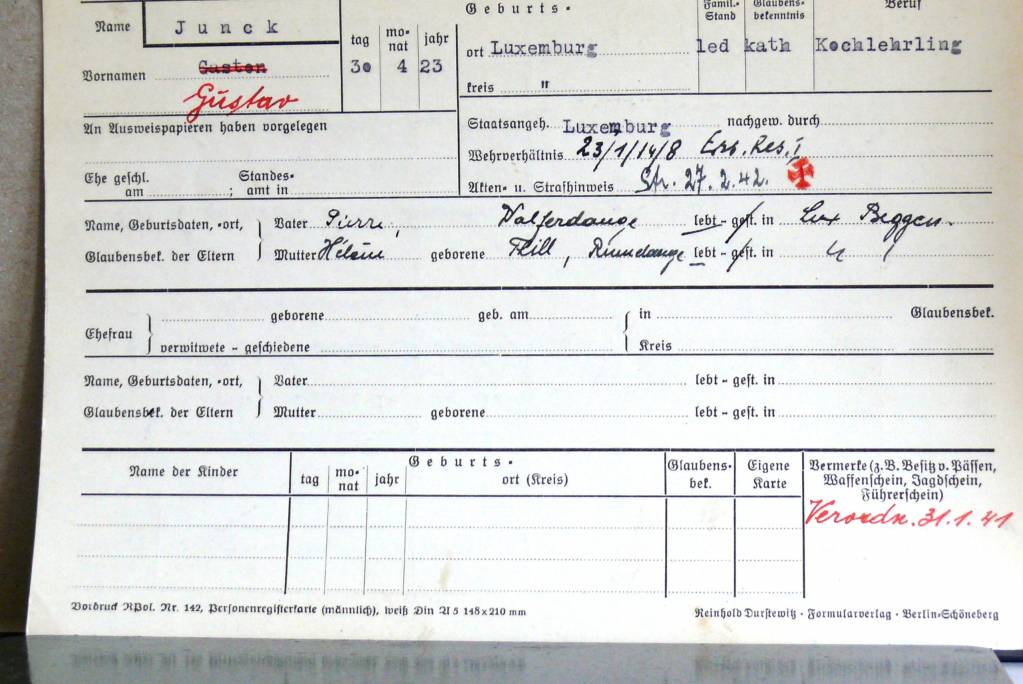 Name Junck
Geburts-
Famil.-Stand
Glaubens-bekenntnis
Beruf
tag 30
mo-nat 4
jahr 23
ort Luxemburg
led kath Kochlehrling
Vornamen Gaston
Gustav
kreis "
An Ausweispapieren haben vorgelegen
Staatsangeh. Luxemburg nachgew. durch
Wehrverhältnis 23/1/14/8 Ers. Res. I
Ehe geschl. am ; Standes-amt in
Akten- u. Strafhinweis Str. 27.2.42.
Name, Geburtsdaten, -ort, Vater Pierre, Walferdange lebt - gest. in Lux Beggen.
Glaubensbek. der Eltern Mutter Hélène geborene Thill, lebt - gest. in "
Ehefrau geborene geb. am in Glaubensbek.
verwitwete - geschiedene Kreis
Name, Geburtsdaten, -ort, Vater lebt - gest. in
Glaubensbek. der Eltern Mutter geborene lebt - gest. in
Name der Kinder
Geburts-
tag mo-nat jahr ort (Kreis)
Glaubens-bek.
Eigene Karte
Vermerke (z.B. Besitz v. Pässen,
Waffenschein, Jagdschein,
Führerschein)
Verordn. 31.1.41
Vordruck RPol. Nr. 142, Personenregisterkarte (männlich), weiß Din A 5 148x210 mm
Reinhold Durstewitz · Formularverlag · Berlin-Schöneberg